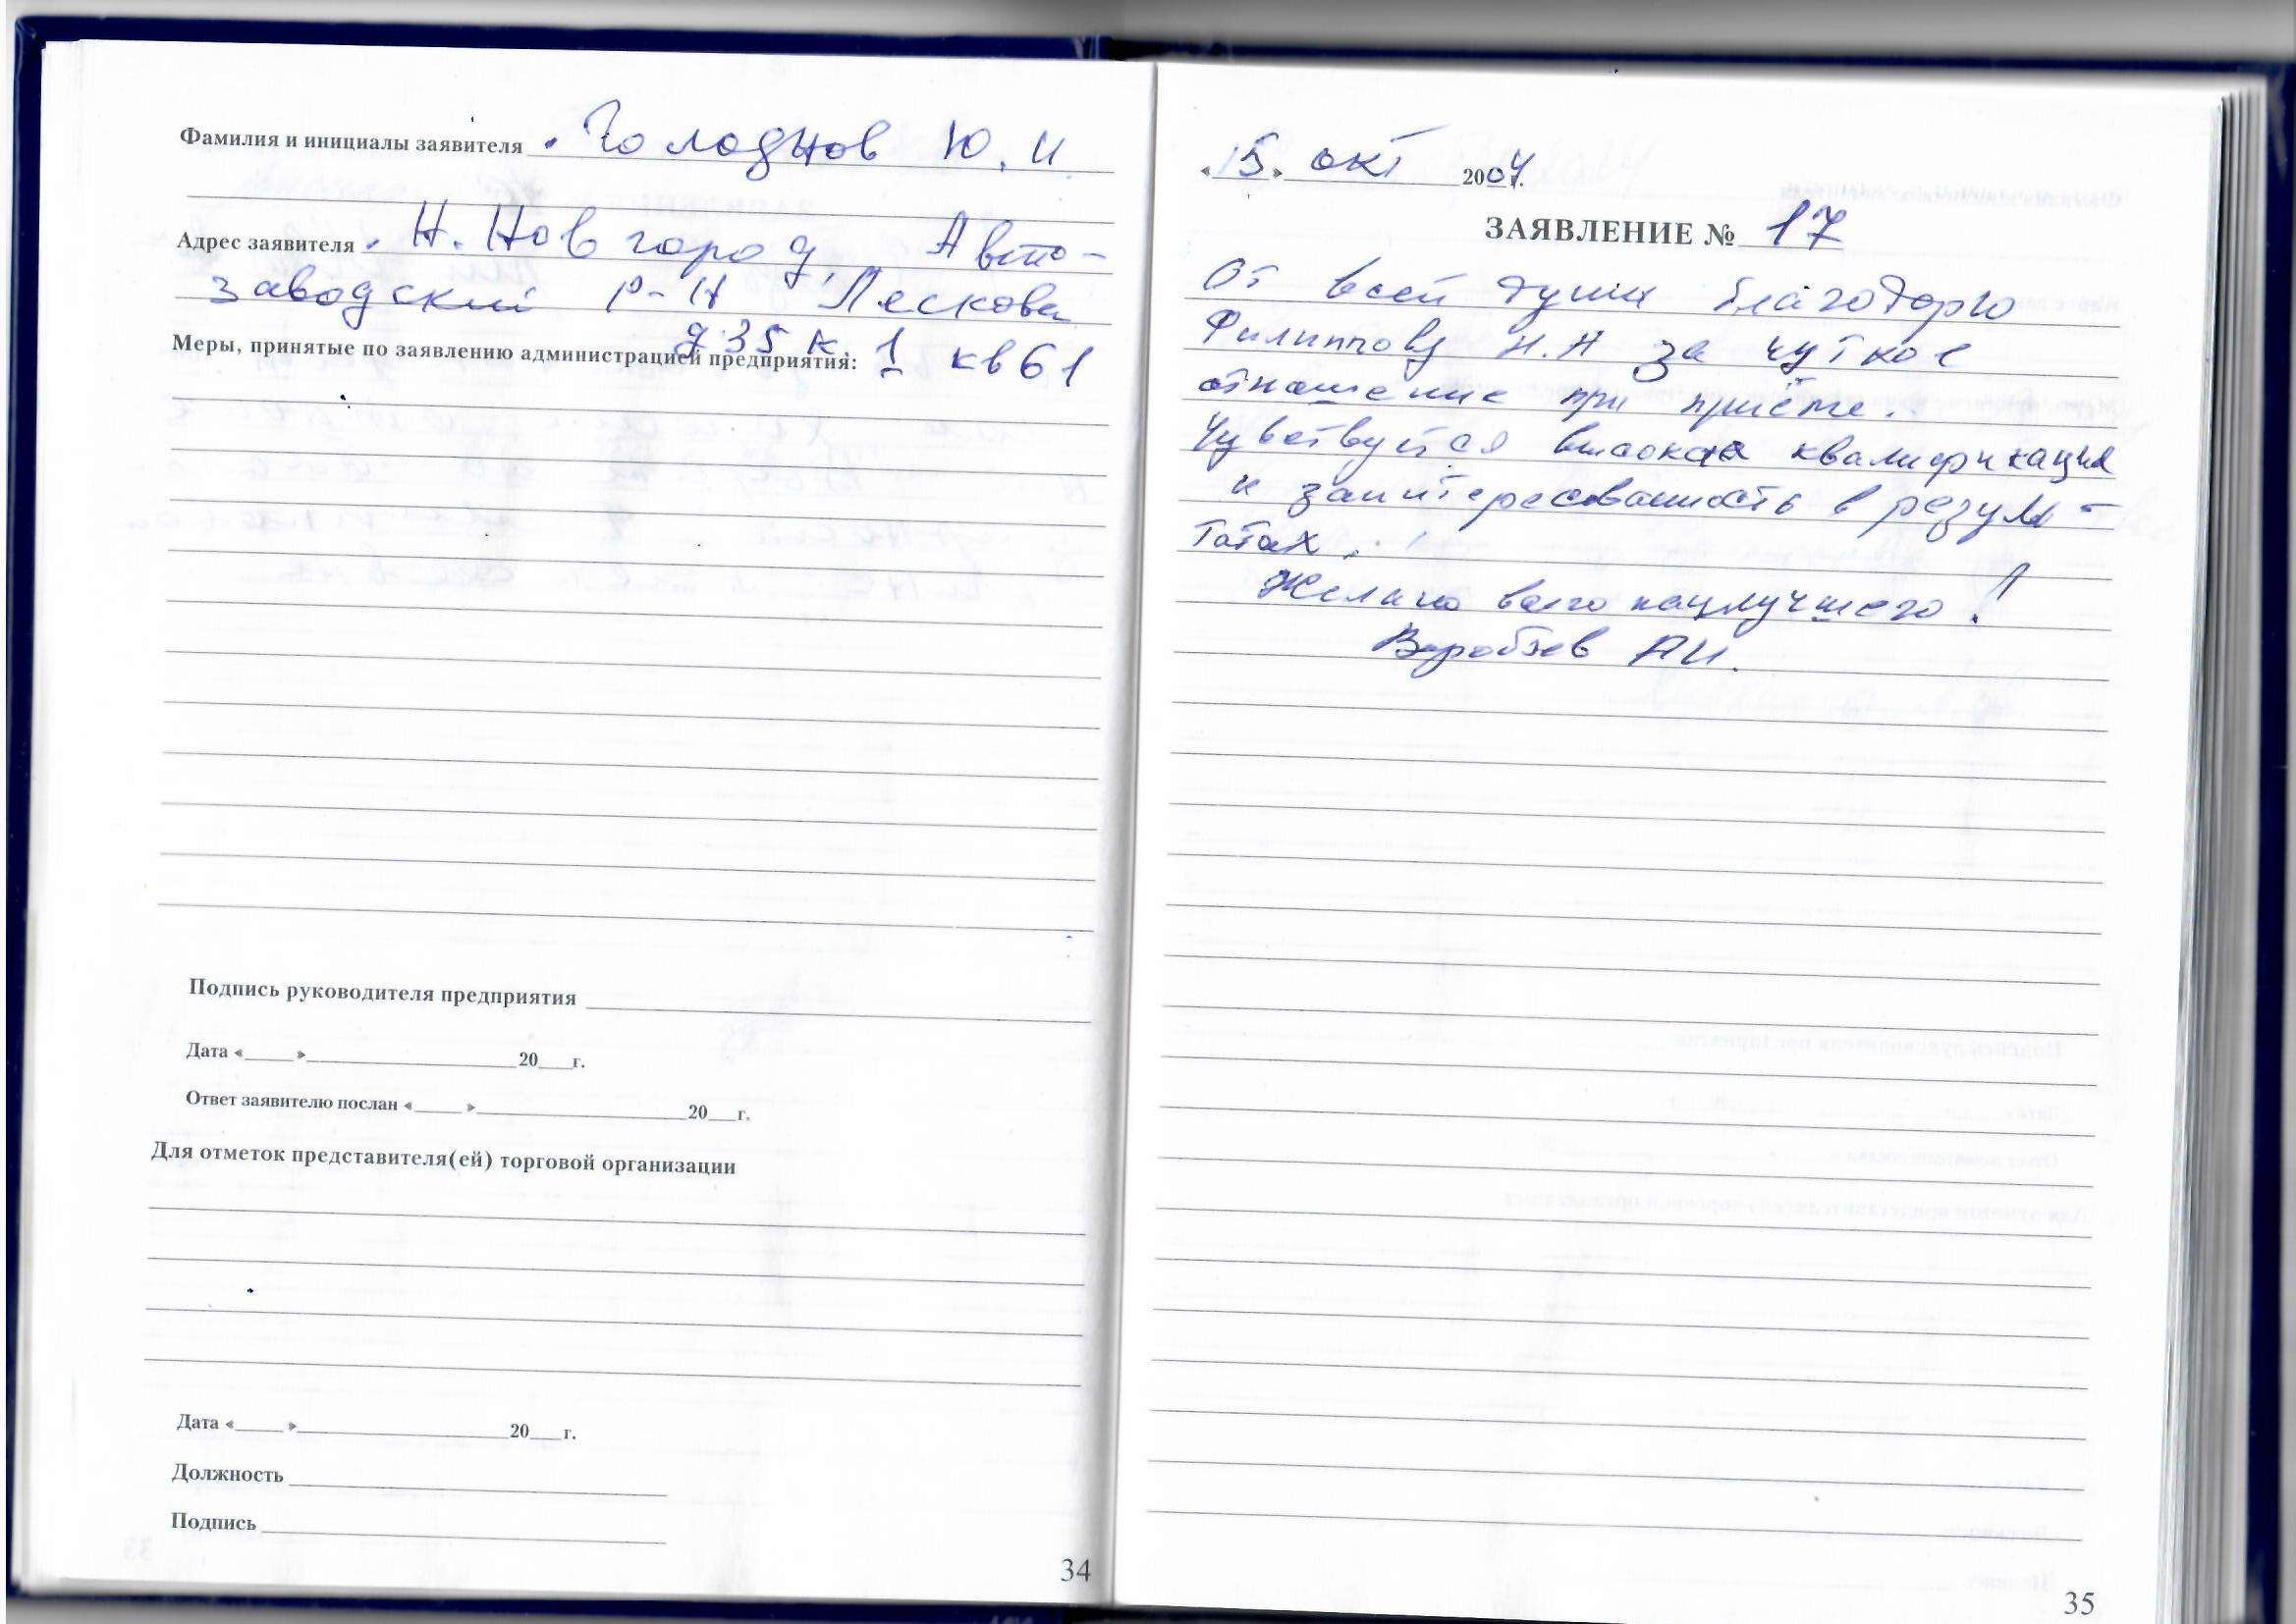 Фамилия и инициалы заявителя . Голоднов Ю. И
Адрес заявителя . Н. Новгород, Авто-
заводский р-н, Лескова
д. 35 к. 1 кв 61
Меры, принятые по заявлению администрацией предприятия:
Подпись руководителя предприятия
Дата «____»____20__г.
Ответ заявителю послан «____»____20__г.
Для отметок представителя(ей) торговой организации
Дата «____»____20__г.
Должность
Подпись
34
«15» окт 2004г.
ЗАЯВЛЕНИЕ № 17
От всей души благодарю
Филиппову Н.А за чуткое
отношение при приёме.
Чувствуется высокая квалификация
и заинтересованность в резуль-
татах.
Желаю всего наилучшего!
Воробьев АИ.
35